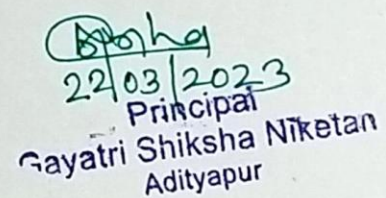 22/03/2023
Principal
Gayatri Shiksha Niketan
Adityapur